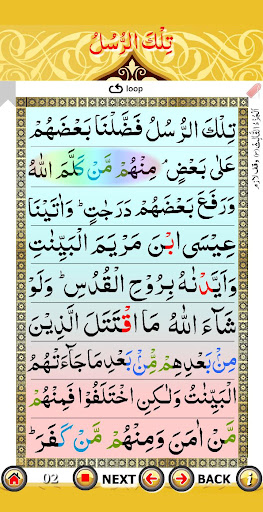 تِلْكَ الرُّسُلُ
loop
تِلْكَ الرُّسُلُ فَضَّلْنَا بَعْضَهُمْ
عَلٰى بَعْضٍ ۘ مِنْهُمْ مَّنْ كَلَّمَ اللّٰهُ
وَرَفَعَ بَعْضَهُمْ دَرَجٰتٍ ؕ وَاٰتَيْنَا
عِيْسَى ابْنَ مَرْيَمَ الْبَيِّنٰتِ
وَاَيَّدْنٰهُ بِرُوْحِ الْقُدُسِ ؕ وَلَوْ
شَآءَ اللّٰهُ مَا اقْتَتَلَ الَّذِيْنَ
مِنْۢ بَعْدِهِمْ مِّنْۢ بَعْدِ مَا جَآءَتْهُمُ
الْبَيِّنٰتُ وَلٰكِنِ اخْتَلَفُوْا فَمِنْهُمْ
مَّنْ اٰمَنَ وَمِنْهُمْ مَّنْ كَفَرَ ؕ
02 NEXT BACK i